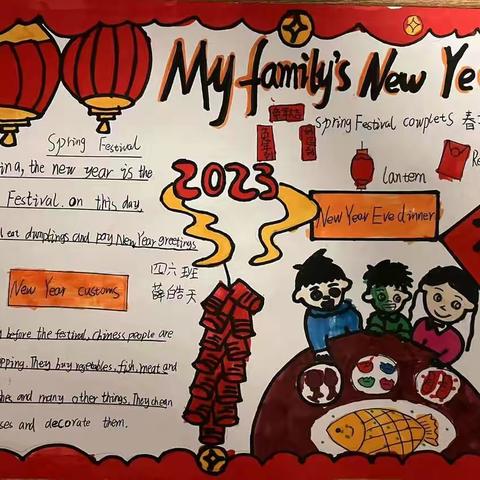 My family's New Ye
Spring Festival
ina, the new year is the
Festival. on this day
l eat dumplings and pay New Year greetings
New Year customs
before the festival, chiness people are
pping. They buy vegetables, fish, meat and
hes and many other things. They clean
ses and decorate them.
2023
四六班
薛皓天
Spring Festival complets 春
lantern
Re
New Year Eve dinner